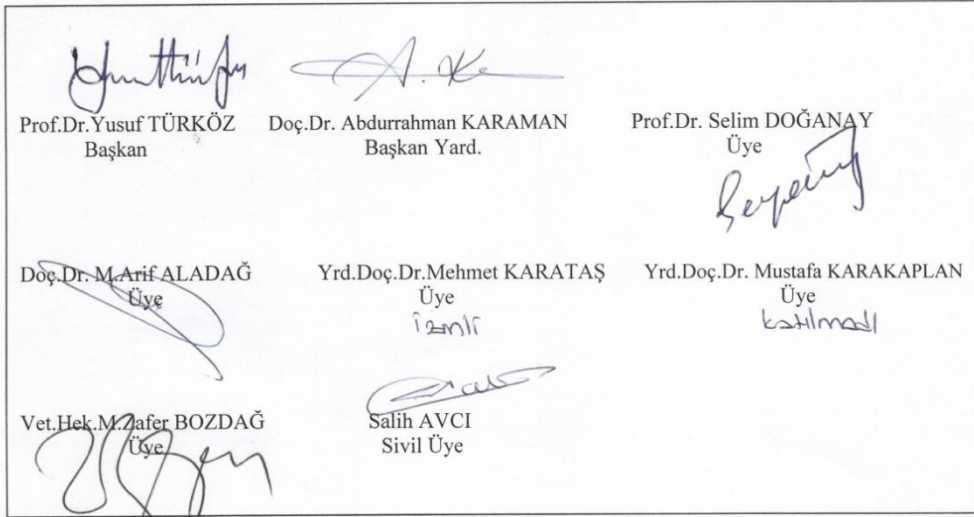 Prof.Dr.Yusuf TÜRKÖZ
Başkan
Doç.Dr. Abdurrahman KARAMAN
Başkan Yard.
Prof.Dr. Selim DOĞANAY
Üye
Doç.Dr. M.Arif ALADAĞ
Üye
Yrd.Doç.Dr.Mehmet KARATAŞ
Üye
izinli
Yrd.Doç.Dr. Mustafa KARAKAPLAN
Üye
katılmadı
Vet.Hek.M.Zafer BOZDAĞ
Üye
Salih AVCI
Sivil Üye